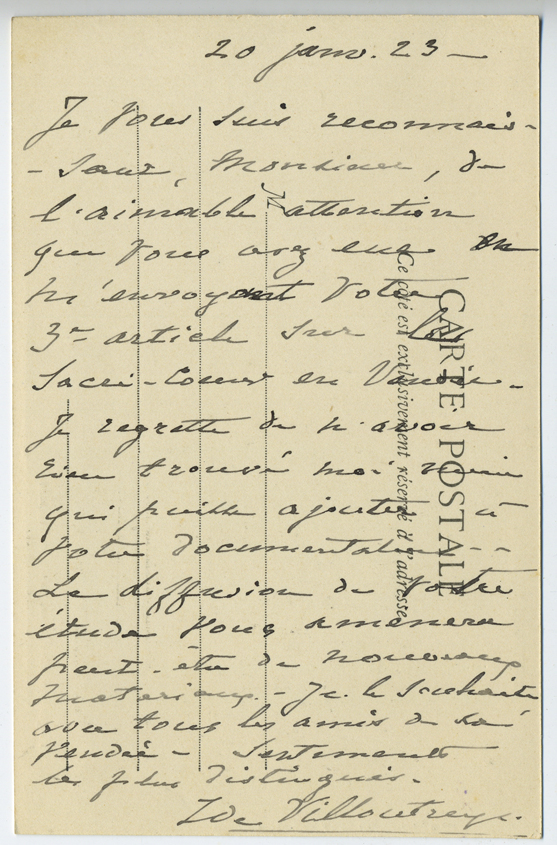 20 janv. 23 —
Je vous suis reconnais-
- sant, Monsieur, de
l'aimable attention
que vous avez eue en
m'envoyant votre
3e article sur les
Sacré-Coeurs en Vendée -
Je regrette de n'avoir
rien trouvé moi même
qui puisse ajouter à
votre documentation --
La diffusion de votre
étude vous amenera
peut-être de nouveaux
materiaux. - Je le souhaite
avec tous les amis de la
Vendée - Sentiments
les plus distingués.
de Villoutreys.
M
CARTE POSTALE
Ce côté est exclusivement réservé à l'adresse